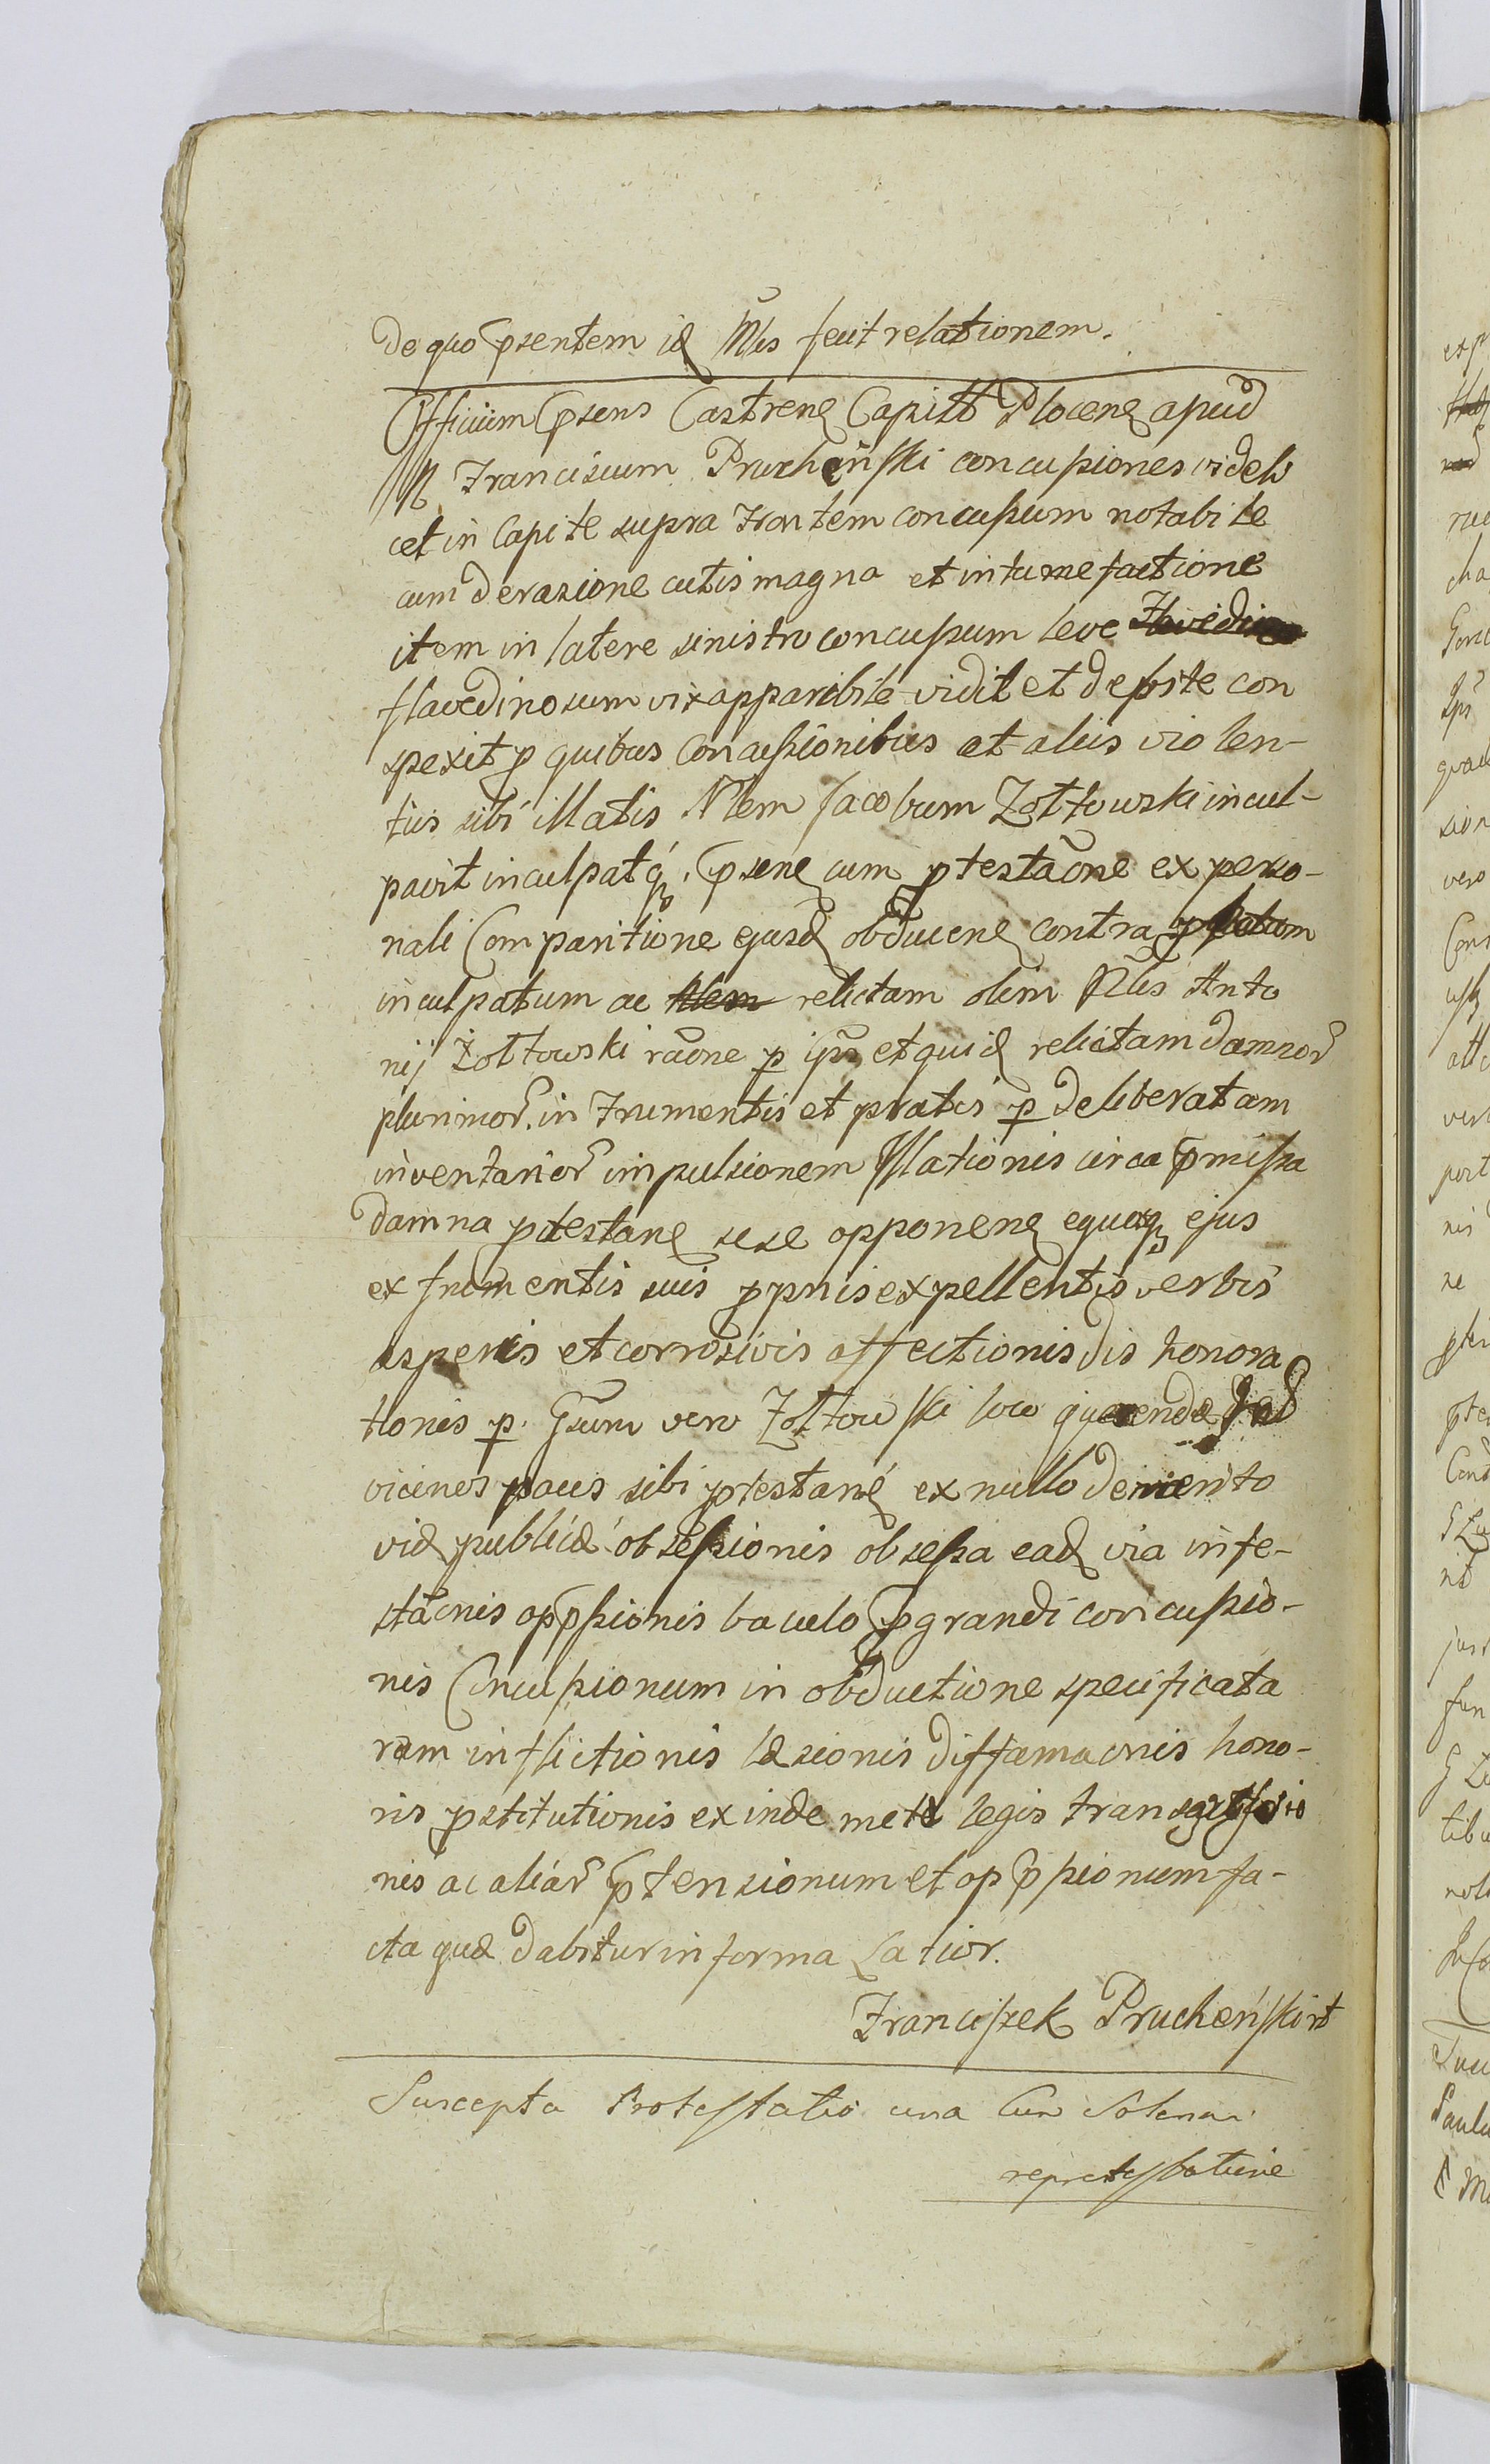 de quo psentem id Mrls fecit relationem.
Officium psens Castrens Capitt Plocens apud
N Franciscum Pruchęński concussiones videli
cet in Capite supra Frontem concussum notabile
cum derasione cutis magna et intumefactione
item in latere sinistro concussum leve
flavedinosum vix apparibile vidit et debite con
spexit p quibus Concussionibus et aliis violen-
tiis sibi illatis Nlem Jacobum Żółtowski incul-
pavit inculpatq. psens cum ptestaōne ex perso-
nali Comparitione ejusd obducens contra
inculpatum ac Nlem relictam olim Nlis Anto
nij Żołtowski raōne p ips et quid relictam damnor
plurimor. in Frumentis et pratis p deliberatam
inventarior impulsionem Illationis circa pmissa
damna ptestans sese opponens equosq ejus
ex frumentis suis ppriis expellentis verbis
asperis et corrosivis affectionis dishonora
tionis p. Gsum vero Żołtowski loco querendæ ad
vicinos pacis sibi ptestans ex nullo demerito
viæ publicæ obsessionis obsessa eaq via infe-
stācnis oppssionis baculo pgrandi concussio-
nis Concussionum in obductione specificata
rum inflictionis læsionis diffamacnis hono-
ris pstitutionis exinde metæ legis transgressio
nis ac aliar ptensionum et oppssionum fa-
cta quæ dabitur in forma Latior.
Franciszek Prucheński mp
Suscepta Protestatio una Cum Solenni
reprotestatione